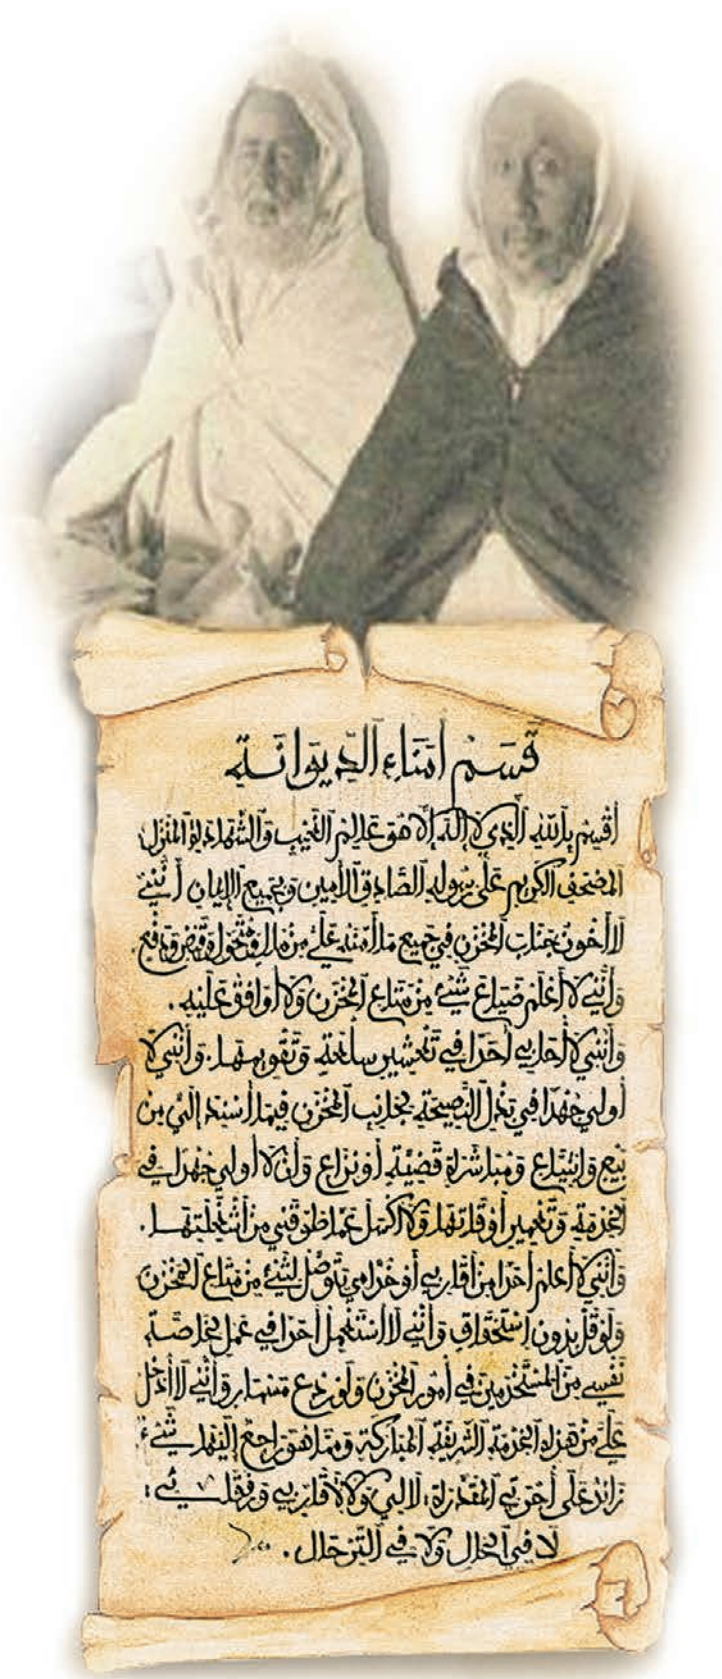 قسم أمناء الديوانة
أقسم بالله الذي لا إله إلا هو عالم الغيب والشهادة المنزل
المصحف الكريم على رسوله الصادق الأمين وبجميع الأيمان أنني
لا أخون بجناب المخزن في جميع ما أأتمنه علي من مال وتحوله قبض ودفع
وأنني لا أعلم ضياع شيء من متاع المخزن ولا أوافق عليه.
وأنني لا أحابي أحدا في تعشير سلعته وتقويمها. وأنني لا
أولي جهدا في بذل النصيحة بجانب المخزن فيما أسند إلي من
بيع وابتياع ومباشرة قضية أو نزاع وأن لا أولي جهدا في
الخدمة وتعمير أوقاتها ولا أكسل عما طوقني من أشغلتها.
وأنني لا أعلم أحدا من أقاربي أو خدامي يتوصل لشيء من متاع المخزن
ولو قل بدون استحقاق وأنني لا أستعمل أحدا في عمل بخاصة
نفسي من المستخدمين في أمور المخزن ولو ردع مسمار وأنني لا أدخل
علي من هذه الخدمة الشريفة المباركة ومما هو راجع إليها شيء
زائد على أجرتي المقدرة، لا لي ولا لأقاربي ورفقائي:
لا في الحال ولا في الترحال.